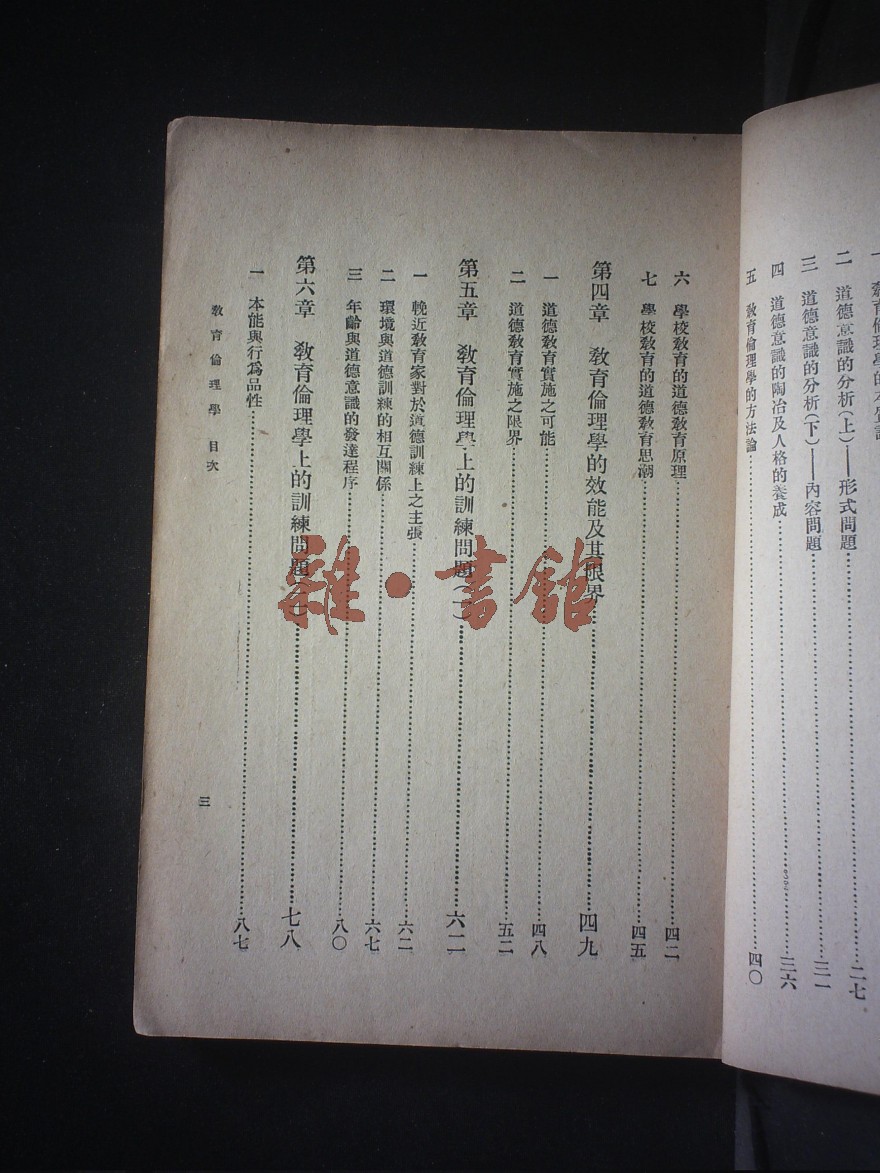 二 道德意識的分析(上)——形式問題……二七
三 道德意識的分析(下)——內容問題……三一
四 道德意識的陶冶及人格的養成……三六
五 敎育倫理學的方法論……四〇
六 學校敎育的道德敎育原理……四二
七 學校敎育的道德敎育思潮……四五
第四章 敎育倫理學的效能及其限界……四九
一 道德敎育實施之可能……四八
二 道德敎育實施之限界……五二
第五章 敎育倫理學上的訓練問題(一)……六二
一 輓近敎育家對於道德訓練上之主張……六二
二 環境與道德訓練的相互關係……六七
三 年齡與道德意識的發達程序……八〇
第六章 敎育倫理學上的訓練問題……七八
一 本能與行為品性……八七
敎育倫理學 目次
三
雜·書館